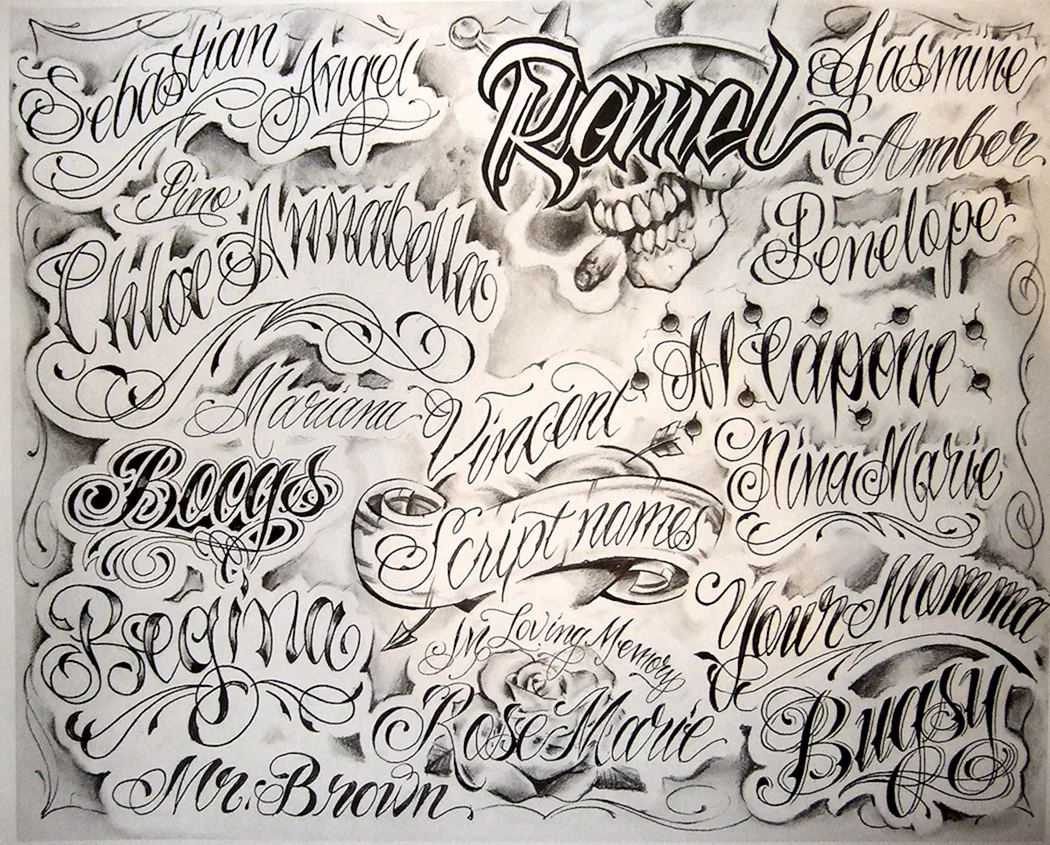 Sebastian
Angel
Pino
Chloe
Annabella
Mariana
Boogs
Regina
Mr. Brown
Romel
Vincent
Script names
In Loving Memory
Rose Marie
Jasmine
Amber
Penelope
Al Capone
Nina Marie
Your Momma
Bugsy